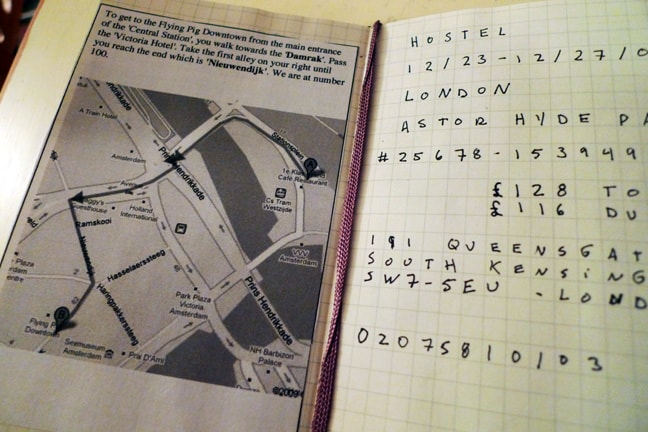 To get to the Flying Pig Downtown from the main entrance
of the 'Central Station', you walk towards the 'Damrak'. Pass
the 'Victoria Hotel'. Take the first alley on your right until
you reach the end which is 'Nieuwendijk'. We are at number
100.
Prins Hendrikkade
A Train Hotel
Stationsplein
A
1e Kl
Café Restaurant
Amsterdam
Prins Hendrikkade
Tram
Westzijde
Holland
International
Ramskooi
Amsterdam
Hasselaerssteeg
Haringpakkerssteeg
Park Plaza
Victoria
Amsterdam
Prins Hendrikkade
B
Flying
Downtown
Sexmuseum
Amsterdam
Prix D'Ami
NH Barbizon
Palace
HOSTEL
12/23-12/27/0
LONDON
ASTOR HYDE PA
#25678-153949
£128 TO
£116 DU
191 QUEENSGAT
SOUTH KENSING
SW7-5EU - LOND
02075810103